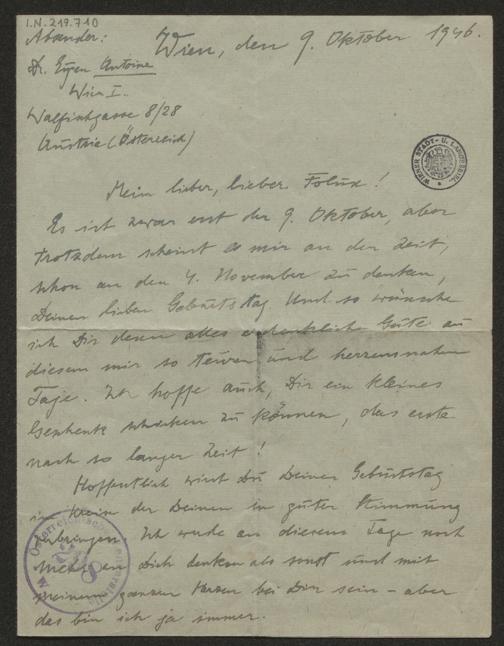 I.N. 219.710
Absender:
Wien, den 9. Oktober 1946.
Dr. Eugen Antoine
Wien I.
Walfischgasse 8/28
Austria (Österreich)
WIENER STADT- U. LANDESBIBL.
Mein lieber, lieber !
Es ist zwar erst der 9. Oktober, aber
trotzdem scheint es mir an der Zeit,
schon an den 4. November zu denken,
Deinen lieben Geburtstag. Und so wünsche
ich Dir denn alles erdenkliche Gute zu
diesem mir so teuren und herzensnahen
Tage. Ich hoffe auch, Dir ein kleines
Geschenk schicken zu können, das erste
nach so langer Zeit!
Hoffentlich wirst Du Deinen Geburtstag
im Kreise der Deinen in guter Stimmung
verbringen. Ich werde an diesem Tage noch
mehr an Dich denken als sonst und mit
meinem ganzen Herzen bei Dir sein - aber
das bin ich ja immer.